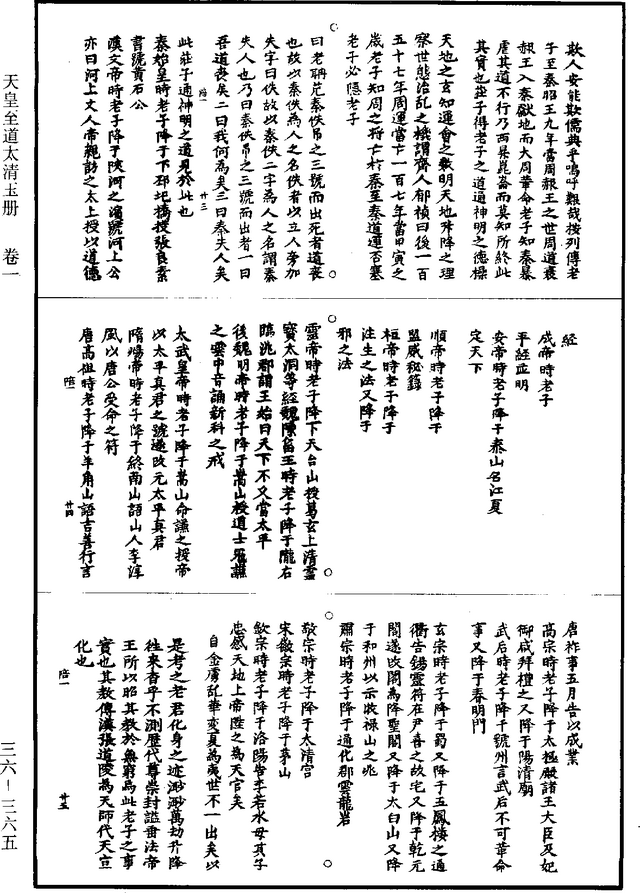 天皇至道太清玉册 卷一
三六—三六五
欺人安能欺儒典乎嗚呼難哉按列傳老
子至秦昭王九年當周赧王之世周道衰
赧王入秦獻地而大周革命老子知秦暴
虐其道不行乃西昇崑崙而莫知所終此
其實也莊子得老子之道通神明之德操
天地之玄知運會之數明天地昇降之理
察世態治亂之機謂齊人郁楨曰後一百
五十七年周運當亡一百七年當甲寅之
歲老子知周之將亡於秦至秦道運否塞
老子必隱老子
曰老聃范秦佚吊之三號而出死者道喪
也故以秦佚為人之名佚者以立人旁加
失字曰佚故以秦佚二字為人之名謂秦
失人也乃曰秦佚吊之三號而出者一曰
吾道喪矣二曰我何為矣三曰秦失人矣
陪一 廿三
此莊子通神明之道見於此也
秦始皇時老子降于下邳圯橋授張良素
書號黃石公
漢文帝時老子降于陝河之濱號河上公
亦曰河上丈人帝親訪之太上授以道德
經
成帝時老子
平經應明
安帝時老子降于泰山名江夏
定天下
順帝時老子降于
盟威秘籙
桓帝時老子降于
注生之法又降于
邪之法
靈帝時老子降下天台山授葛玄上清靈
寶太洞等經魏陳留王時老子降于隴右
臨洮郡謂王始曰天下不又當太平
後魏明帝時老子降于嵩山授道士寇謙
之雲中音誦新科之戒
太武皇帝時老子降于嵩山命謙之授帝
以太平真君之號遂改元太平真君
隋煬帝時老子降于終南山語山人李淳
風以唐公受命之符
唐高祖時老子降于羊角山語吉善行言
陪一 廿四
唐祚事五月告以成業
高宗時老子降于太極殿諸王大臣及妃
御咸拜禮之又降于陽清廟
武后時老子降于虢州言武后不可革命
事又降于春明門
玄宗時老子降于蜀又降于五鳳樓之通
衢告錫靈符在尹喜之故宅又降于乾元
閣遂改閣為降聖閣又降于太白山又降
于和州以示收祿山之兆
肅宗時老子降于通化郡雲龍岩
敬宗時老子降于太清宮
宋徽宗時老子降于茅山
欽宗時老子降于洛陽告李若水母其子
忠感天地上帝陞之為天官矣
自金虜乱華变夏為夷世不一出矣以
是考之老君化身之迹渺渺萬劫升降
往來杳乎不測歷代尊崇封謚垂法帝
王所以昭其教於無窮焉此老子之事
實也其教傳漢張道陵為天師代天宣
化也
陪一 廿五